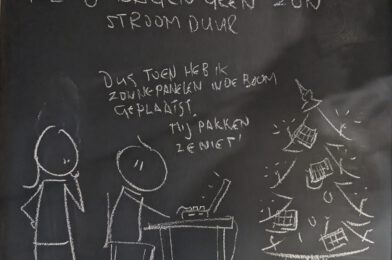 GEEN ZON
STROOM DUUR
DUS TOEN HEB IK
ZONNEPANELEN IN DE BOOM
GEPLAATST.
MIJ PAKKEN
ZE NIET!